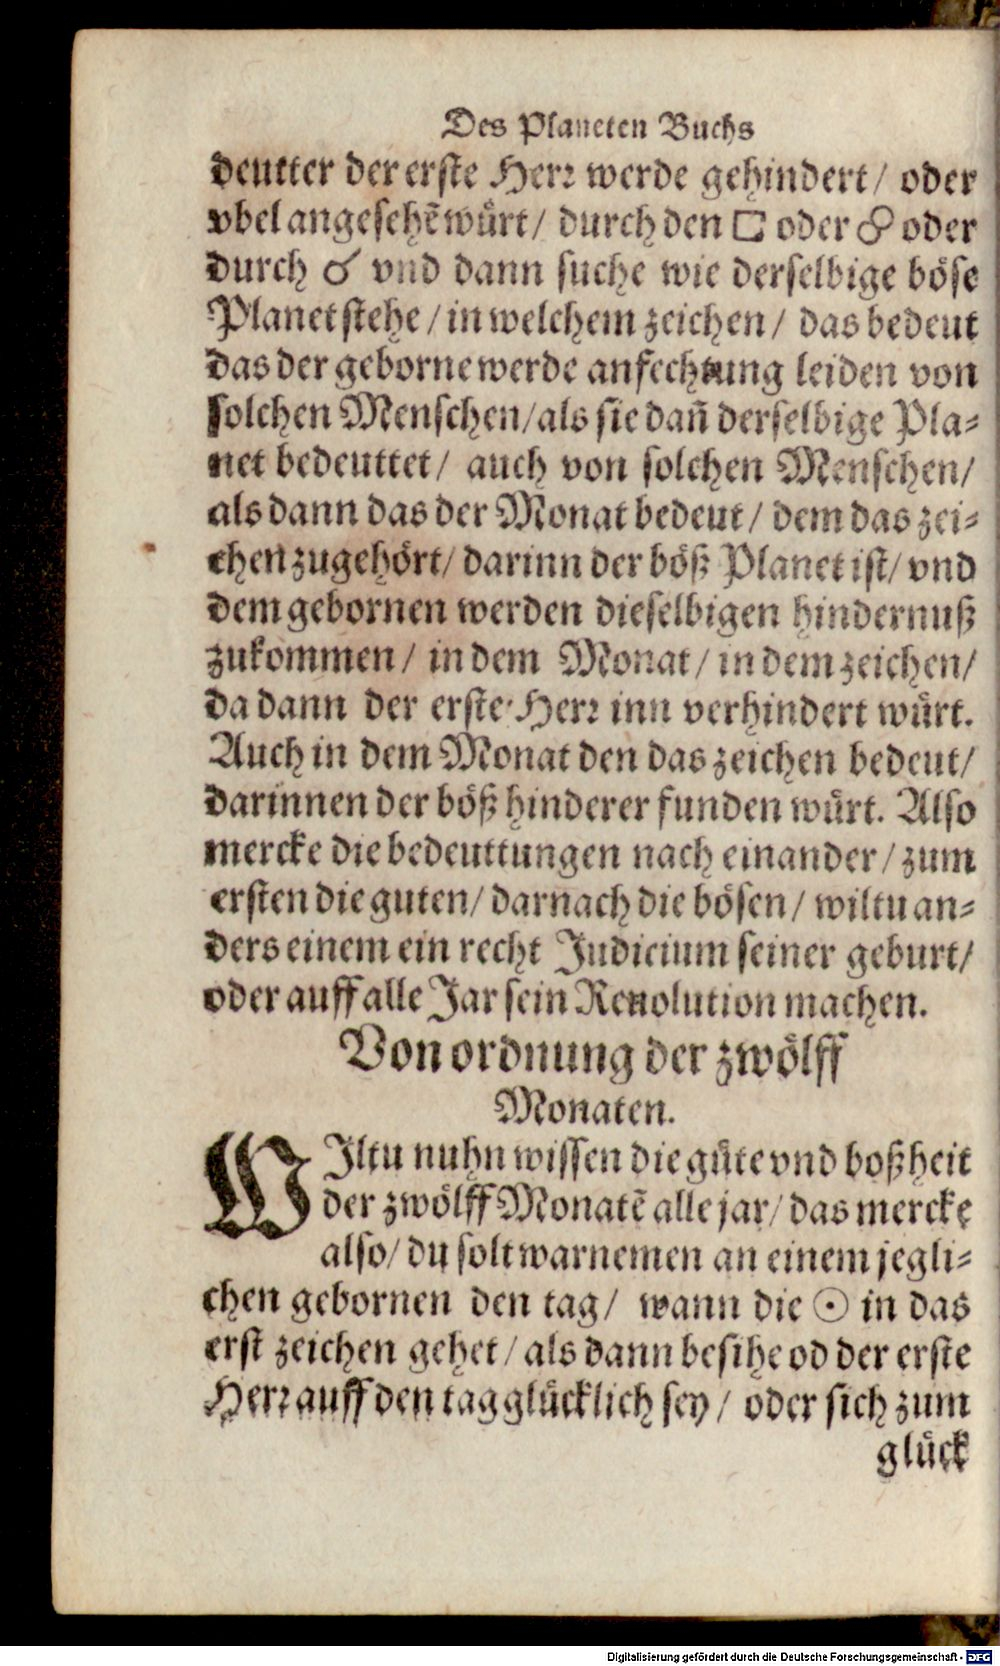 Des Planeten Buchs
deutter der erste Herr werde gehindert/ oder
vbel angesehẽ wuͤrt/ durch den □ oder ☍ oder
durch ☌ vnd dann suche wie derselbige boͤse
Planet stehe/ in welchem zeichen/ das bedeut
das der geborne werde anfechtung leiden von
solchen Menschen/ als sie dañ derselbige Pla-
net bedeuttet/ auch von solchen Menschen/
als dann das der Monat bedeut/ dem das zei-
chen zugehoͤrt/ darinn der boͤß Planet ist/ vnd
dem gebornen werden dieselbigen hindernuß
zukommen/ in dem Monat/ in dem zeichen/
da dann der erste Herr inn verhindert wuͤrt.
Auch in dem Monat den das zeichen bedeut/
darinnen der boͤß hinderer funden wuͤrt. Also
mercke die bedeuttungen nach einander/ zum
ersten die guten/ darnach die boͤsen/ wiltu an-
ders einem ein recht Judicium seiner geburt/
oder auff alle Jar sein Reuolution machen.
Von ordnung der zwoͤlff
Monaten.
WIltu nuhn wissen die guͤte vnd boßheit
der zwoͤlff Monatẽ alle jar/ das mercke
also/ du solt warnemen an einem jegli-
chen gebornen den tag/ wann die ☉ in das
erst zeichen gehet/ als dann besihe od der erste
Herr auff den tag gluͤcklich sey/ oder sich zum
gluͤck
Digitalisierung gefördert durch die Deutsche Forschungsgemeinschaft - DFG